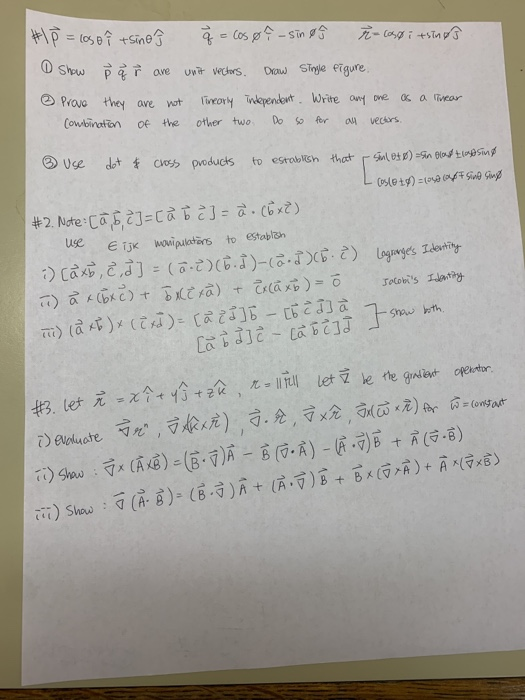 #1 p⃗ = cosθ î + sinθ ĵ q⃗ = cos ø î - sin ø ĵ r⃗ = cosø i + sinø ĵ
① Show p⃗ q⃗ r⃗ are unit vectors. Draw single figure.
② Prove they are not linearly independent. Write any one as a linear
combination of the other two. Do so for all vectors.
③ Use dot & cross products to establish that [ sin(θ±ø) = sinθ cosø ± cosθ sinø
cos(θ±ø) = cosθ cosø ∓ sinθ sinø
#2. Note: [a⃗, b⃗, c⃗] = [a⃗ b⃗ c⃗] = a⃗ · (b⃗×c⃗)
use ∈ijk manipulations to establish
i) [a⃗×b⃗, c⃗, d⃗] = (a⃗·c⃗)(b⃗·d⃗) - (a⃗·d⃗)(b⃗·c⃗) Lagrange's Identity
ii) a⃗ × (b⃗×c⃗) + b⃗×(c⃗×a⃗) + c⃗×(a⃗×b⃗) = 0⃗ Jacobi's Identity
iii) (a⃗×b⃗) × (c⃗×d⃗) = [a⃗ c⃗ d⃗]b⃗ - [b⃗ c⃗ d⃗]a⃗ ] show both
[a⃗ b⃗ d⃗]c⃗ - [a⃗ b⃗ c⃗]d⃗
#3. Let r⃗ = xî + yĵ + zk̂, r = ||r⃗|| Let ∇⃗ be the gradient operator.
i) evaluate ∇⃗rⁿ, ∇⃗×(k̂×r⃗), ∇⃗·r⃗, ∇⃗×r⃗, ∇⃗×(ω⃗×r⃗) for ω⃗ = constant
ii) Show : ∇⃗×(A⃗×B⃗) = (B⃗·∇⃗)A⃗ - B⃗(∇⃗·A⃗) - (A⃗·∇⃗)B⃗ + A⃗(∇⃗·B⃗)
iii) Show : ∇⃗(A⃗·B⃗) = (B⃗·∇⃗)A⃗ + (A⃗·∇⃗)B⃗ + B⃗×(∇⃗×A⃗) + A⃗×(∇⃗×B⃗)